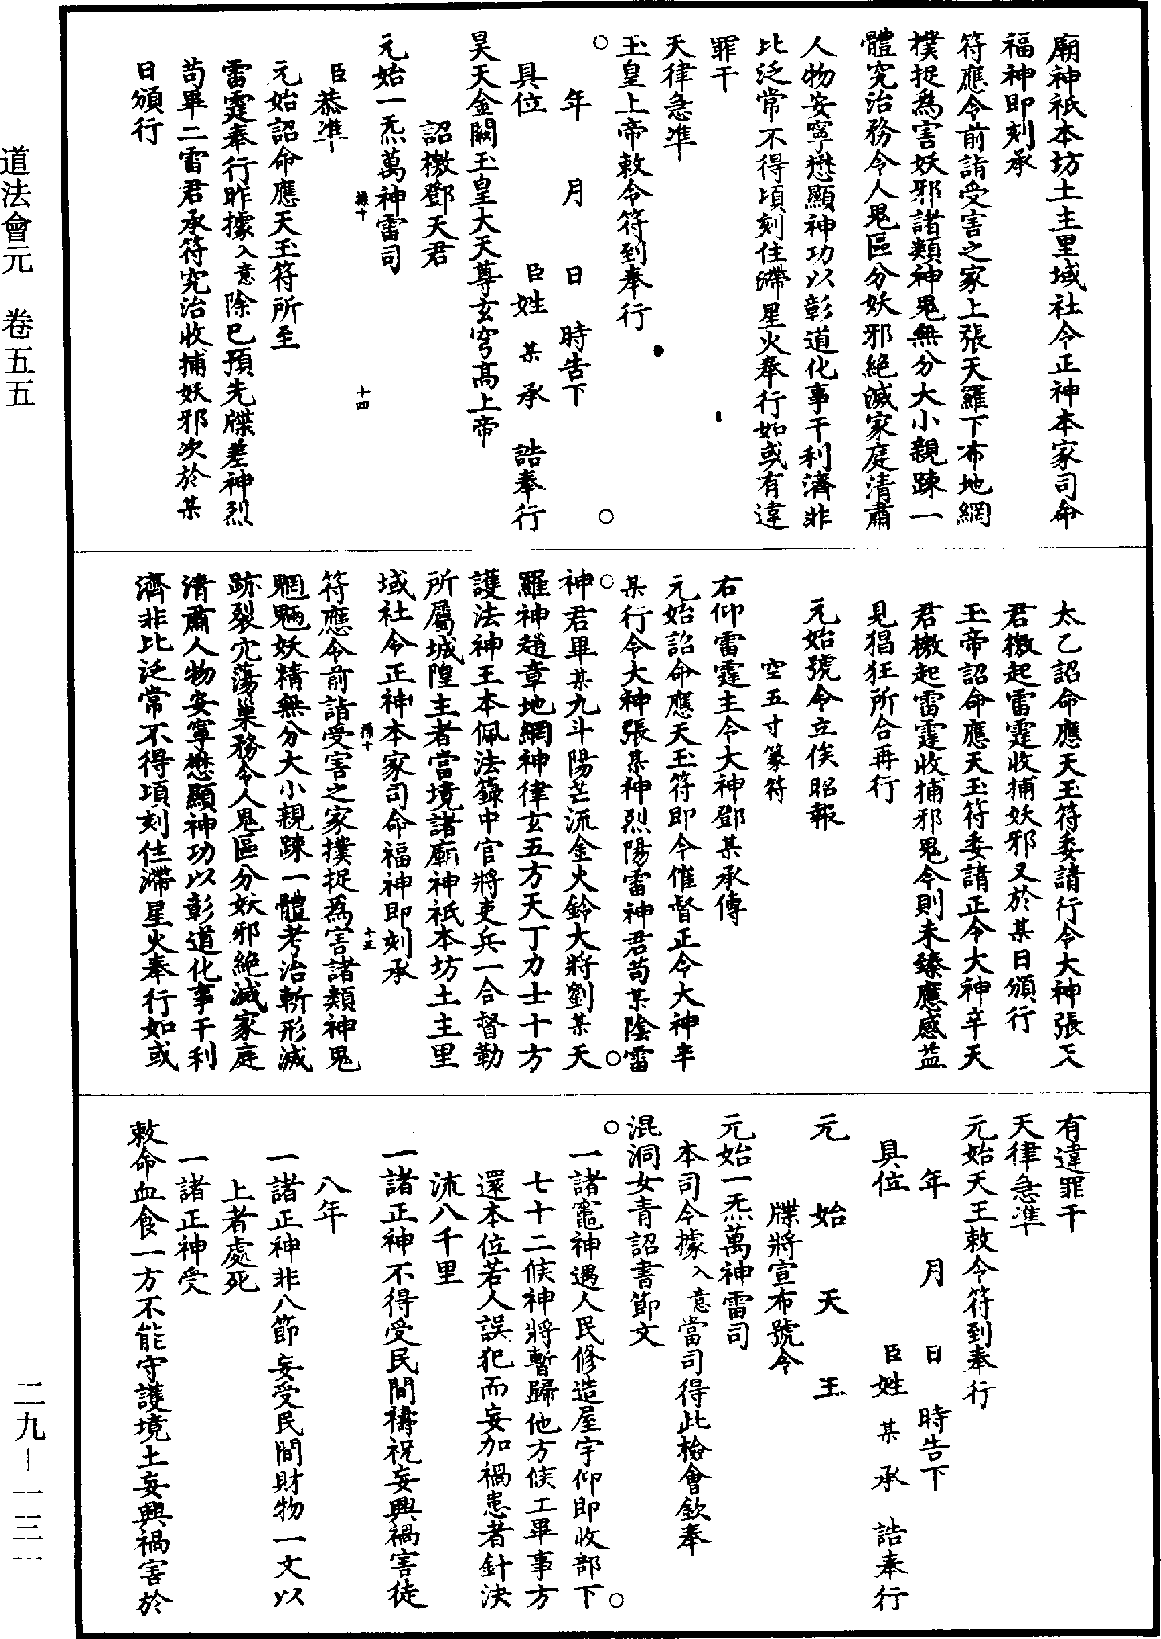 廟神祇本坊土主里域社令正神本家司命
福神即刻承
符應令前詣受害之家上張天羅下布地網
撲捉爲害妖邪諸類神鬼無分大小親踈一
體究治務令人鬼區分妖邪絶滅家庭清肅
人物安寧懋顯神功以彰道化事干利濟非
比泛常不得頃刻住滯星火奉行如或有違
罪干
天律急準
玉皇上帝敕令符到奉行
年　月　日　時告下
具位　臣姓某承　誥奉行
昊天金闕玉皇大天尊玄穹高上帝
詔檄鄧天君
元始一炁萬神雷司
臣恭準
元始詔命應天玉符所至
雷霆奉行昨據入意除已預先牒差神烈
苟畢二雷君承符究治收捕妖邪次於某
日頒行
十四
太乙詔命應天玉符委請行令大神張天
君檄起雷霆收捕妖邪又於某日頒行
玉帝詔命應天玉符委請正令大神辛天
君檄起雷霆收捕邪鬼令則未臻應感益
見猖狂所合再行
元始號令立俟昭報
空五寸篆符
右仰雷霆主令大神鄧某承傳
元始詔命應天玉符即令催督正令大神辛
某行令大神張某神烈陽雷神君苟某陰雷
神君畢某九斗陽芒流金火鈴大將劉某天
羅神趙章地網神律玄五方天丁力士十方
護法神王本佩法籙中官將吏兵一合督勒
所屬城隍主者當境諸廟神祇本坊土主里
域社令正神本家司命福神即刻承
十五
符應令前詣受害之家撲捉爲害諸類神鬼
魍魎妖精無分大小親踈一體考治斬形滅
跡裂穴蕩巢務令人鬼區分妖邪絶滅家庭
清肅人物安寧懋顯神功以彰道化事干利
濟非比泛常不得頃刻住滯星火奉行如或
有違罪干
天律急準
元始天王敕令符到奉行
年　月　日　時告下
具位　臣姓某承　誥奉行
元始天王
牒將宣布號令
元始一炁萬神雷司
本司今據入意當司得此檢會欽奉
混洞女青詔書節文
一諸竈神遇人民修造屋宇仰即收部下
七十二候神將暫歸他方候工畢事方
還本位若人誤犯而妄加禍患者針決
流八千里
一諸正神不得受民間禱祝妄興禍害徒
八年
一諸正神非八節妄受民間財物一文以
上者處死
一諸正神受
敕命血食一方不能守護境土妄興禍害於
道法會元　卷五五
二九—一三一